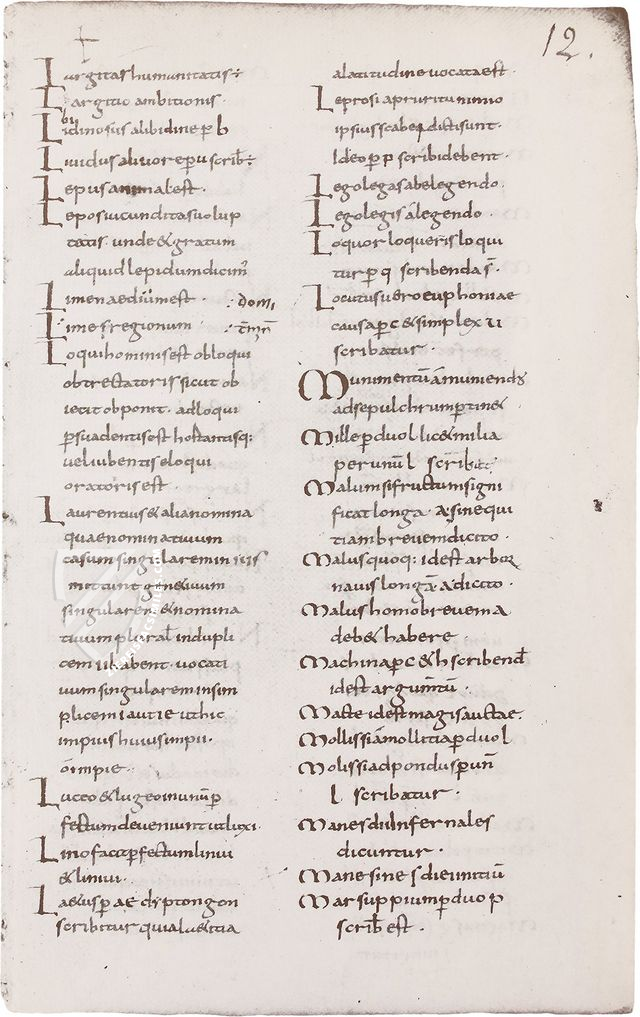 12.
Largitas humanitatis :
Largitio ambitionis .
Lidinosus alibidine p b
Liuidus aliuore per u scrib :
Lepus animal est .
Lepos iucunditas uolup
tatis . unde & gratum
aliquid lepidum dicim
Limen aedium est . domi
Limes regionum
Loqui hominis est obloqui
obtrectatoris sicut ob
iecit obponit . adloqui
psuadentis est hortantisq;
uel iubentis eloqui
oratoris est .
Laurentius & alia nomina
quae nominatiuum
casum singularem in ius
mittunt gen&iuum
singularem & nomina
tiuum plural indupli
cem ii habent . uocati
uum singularem in sim
plicem i aut ie ut hic
impius huius impii .
o impie .
Luceo & lugeo in unum p
fectum deueniunt ut luxi .
Lino facit pfectum liniui
& liniui .
Laeus p ae dyptongon
scribitur quia lu&itia
alatitudine uocata est .
Leprosi a pruritu nimio
ipsius scabie dicti sunt .
Ideo p p scribi debent .
Lego legas ab elegendo .
Lego legis a legendo .
Loquor loqueris loqui
tur p q scribenda s .
Locutus uero euphoniae
causa p c & simplex u
scribatur .
Munimentu a muniendo
ad sepulchrum ptin&
Mille p duo l lic& milia
per unum l scribit
Malum si fructum signi
ficat longa a sine qui
tiam breuem dicito .
Malus quoq: id est arbor
nauis longa a dicito .
Malus homo breuem a
deb& habere .
Machina p c & h scribend
id est argumtu .
Macte id est magis auctae .
Mollissia mollitia p duo l
Molis si ad pondus p unu
l scribatur .
Manes dii Infernales
dicuntur .
Mane sine s diei initiu
Marsuppium p duo p
scrib est .